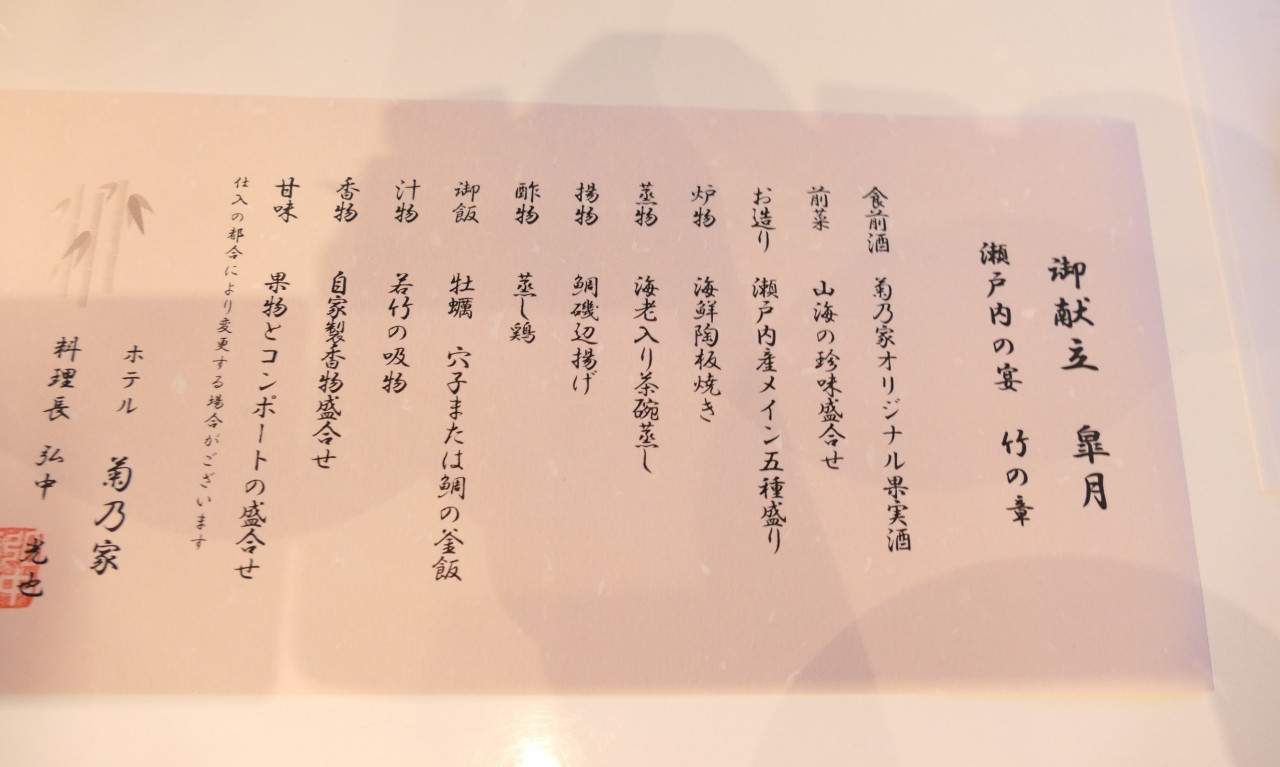 御献立 皐月
瀬戸内の宴 竹の章
食前酒 菊乃家オリジナル果実酒
前菜 山海の珍味盛合せ
お造り 瀬戸内産メイン五種盛り
炉物 海鮮陶板焼き
蒸物 海老入り茶碗蒸し
揚物 鯛磯辺揚げ
酢物 蒸し鶏
御飯 牡蠣 穴子または鯛の釜飯
汁物 若竹の吸物
香物 自家製香物盛合せ
甘味 果物とコンポートの盛合せ
仕入の都合により変更する場合がございます
ホテル 菊乃家
料理長 弘中 光也